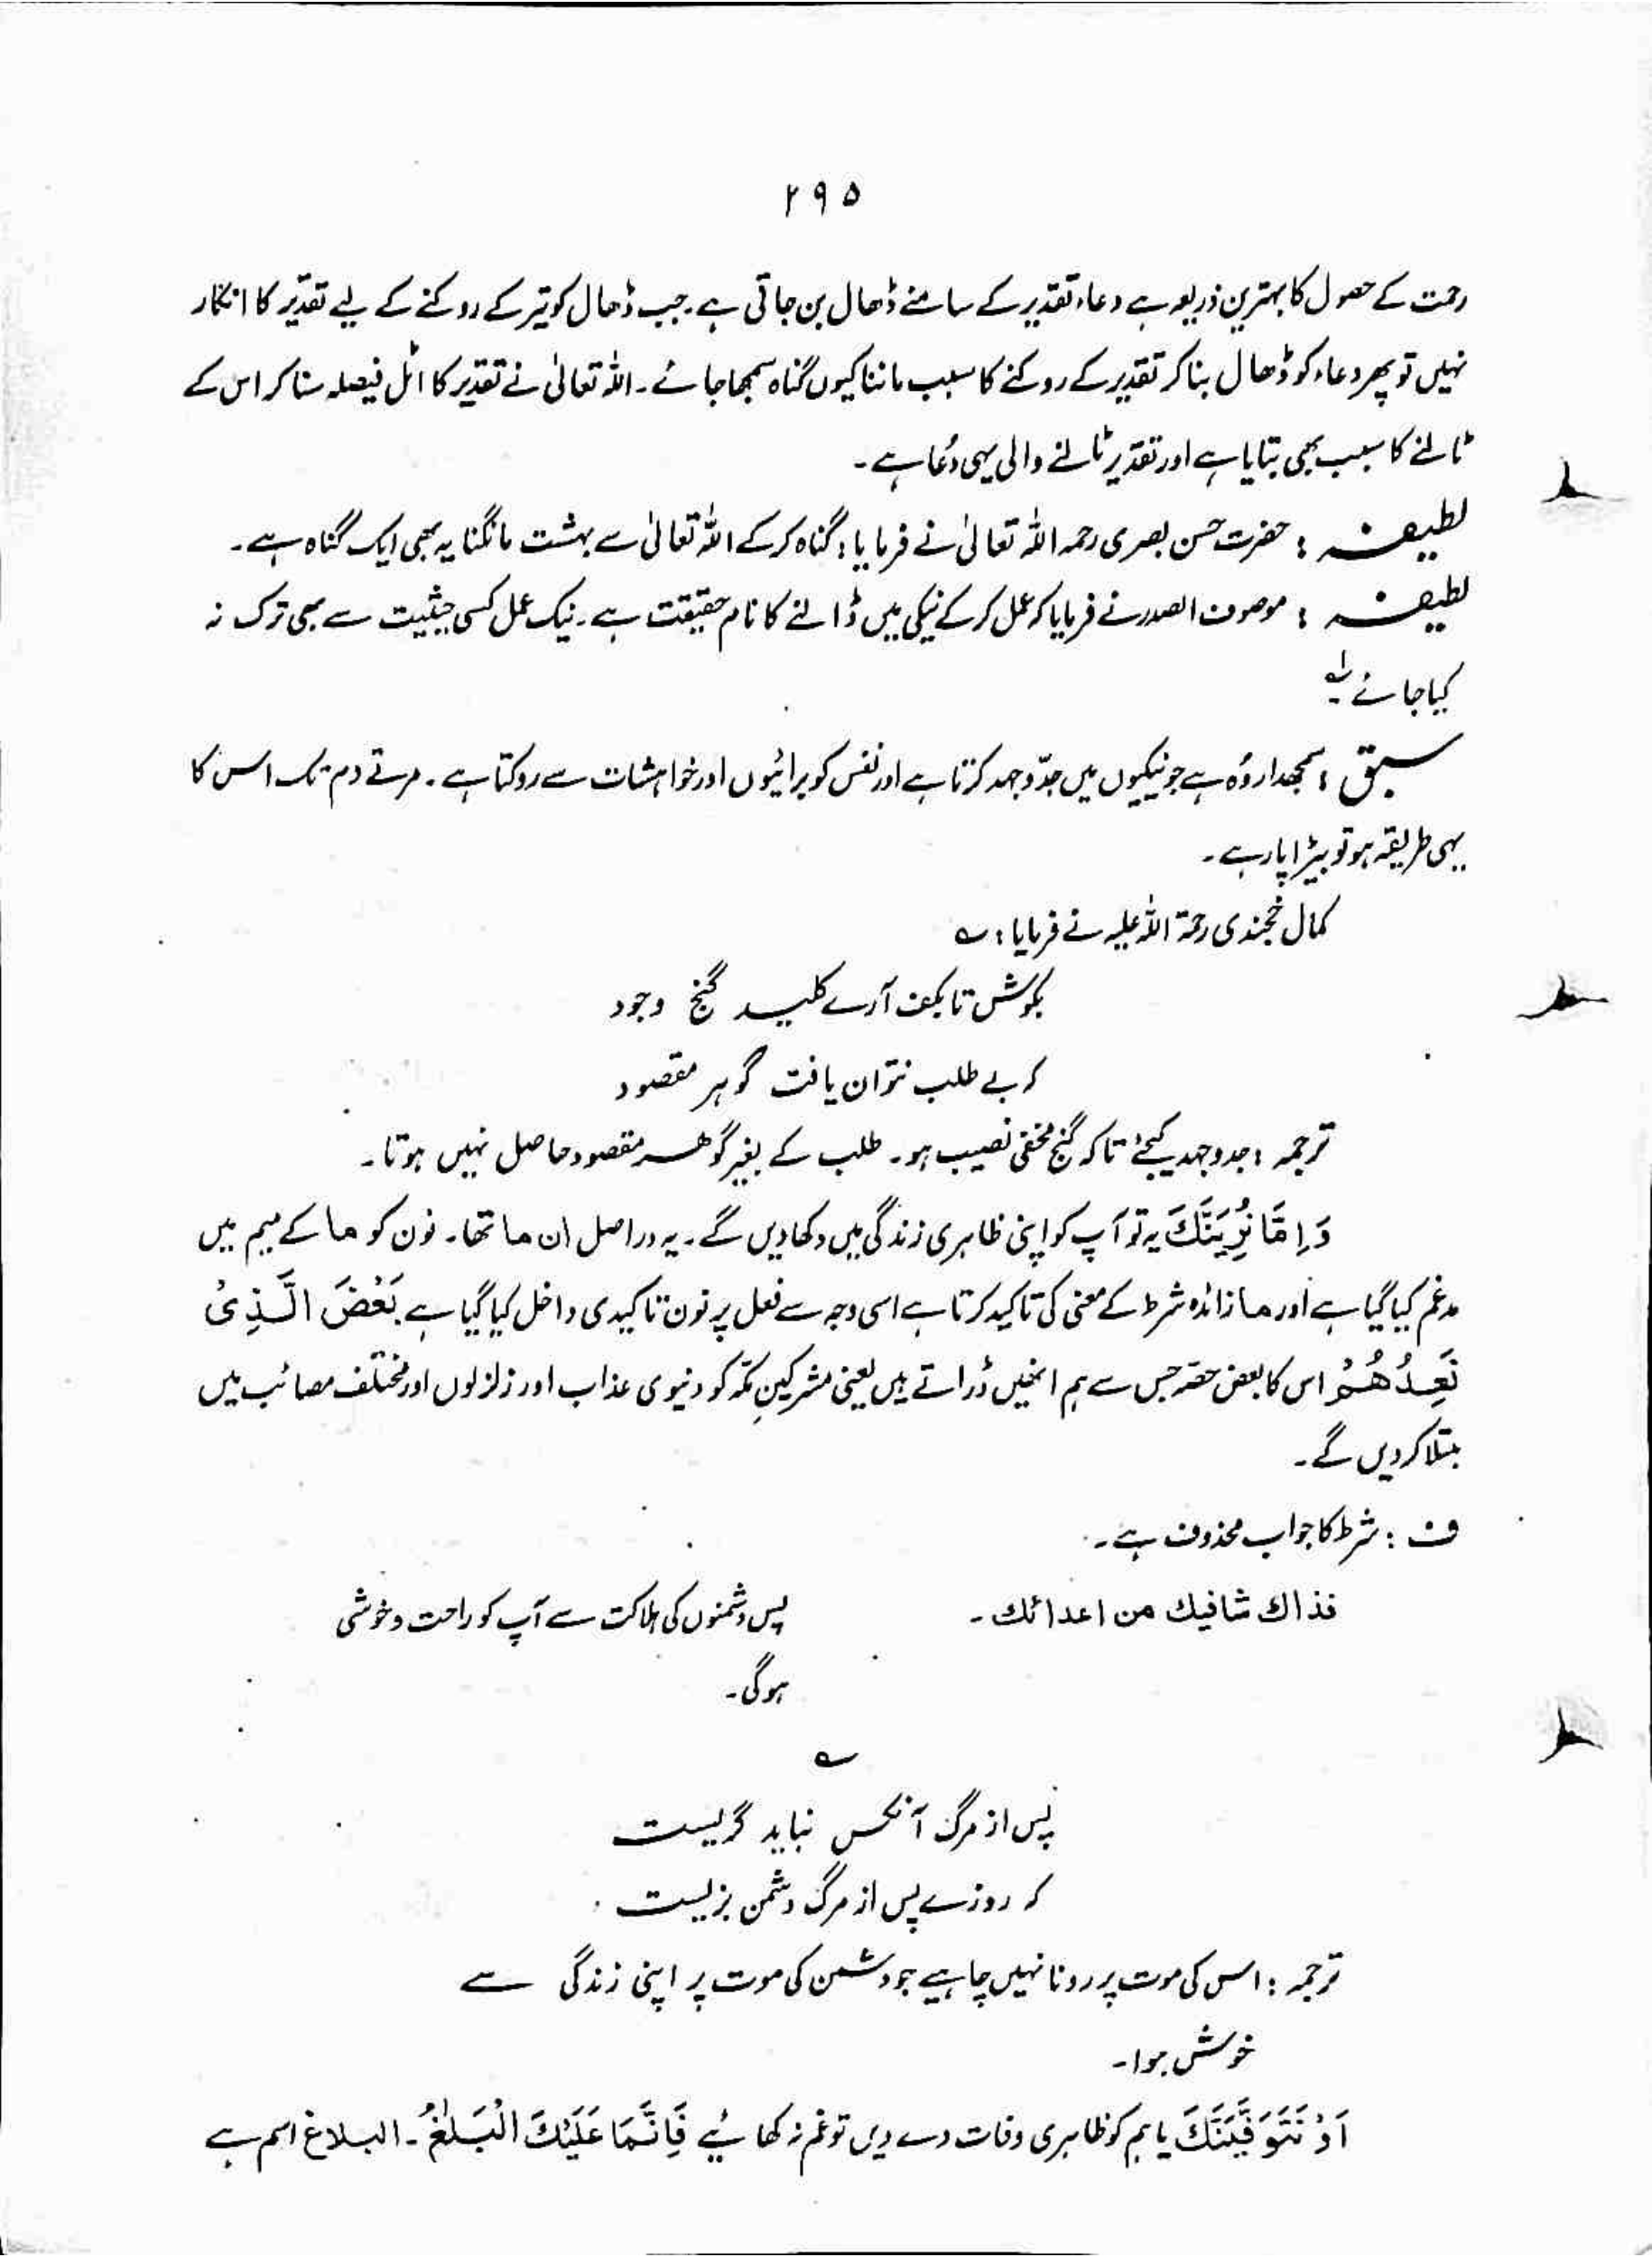 ۲۹۵
رحمت کے حصول کا بہترین ذریعہ ہے دعاء تقدیر کے سامنے ڈھال بن جاتی ہے۔ جب ڈھال کو تیر کے روکنے کے لیے تقدیر کا انکار
نہیں تو پھر دعاء کو ڈھال بنا کر تقدیر کے روکنے کا سبب ماننا کیوں گناہ سمجھا جائے۔ اللہ تعالیٰ نے تقدیر کا اٹل فیصلہ سنا کر اس کے
ٹالنے کا سبب بھی بتایا ہے اور تقدیر ٹالنے والی یہی دُعا ہے۔
لطیفہ : حضرت حسن بصری رحمہ اللہ تعالیٰ نے فرمایا : گناہ کر کے اللہ تعالیٰ سے بہشت مانگنا یہ بھی ایک گناہ ہے۔
لطیفہ : موصوف الصدر نے فرمایا کہ عمل کر کے نیکی میں ڈالنے کا نام حقیقت ہے۔ نیک عمل کسی حیثیت سے بھی ترک نہ
کیا جائے۔ لہ
سبق : سمجھدار وُہ ہے جو نیکیوں میں جدّ و جہد کرتا ہے اور نفس کو برائیوں اور خواہشات سے روکتا ہے۔ مرتے دم تک اس کا
یہی طریقہ ہو تو بیڑا پار ہے۔
کمال خجندی رحمۃ اللہ علیہ نے فرمایا : ؎
بکوش تا بکف آرے کلید گنج وجود
کہ بے طلب نتوان یافت گوہر مقصود
ترجمہ : جدوجہد کیجئے تاکہ گنج مخفی نصیب ہو۔ طلب کے بغیر گوھر مقصود حاصل نہیں ہوتا۔
وَاِمَّا نُرِيَنَّكَ یہ تو آپ کو اپنی ظاہری زندگی میں دکھا دیں گے۔ یہ دراصل ان ما تھا۔ نون کو ما کے میم میں
مدغم کیا گیا ہے اور ما زائدہ شرط کے معنی کی تاکید کرتا ہے اسی وجہ سے فعل پر نون تاکیدی داخل کیا گیا ہے بَعْضَ الَّذِیْ
نَعِدُهُمْ اس کا بعض حصّہ جس سے ہم انھیں ڈراتے ہیں یعنی مشرکینِ مکّہ کو دنیوی عذاب اور زلزلوں اور مختلف مصائب میں
مبتلا کر دیں گے۔
ف : شرط کا جواب محذوف ہے۔
فذاك شافيك من اعدائك۔ پس دشمنوں کی ہلاکت سے آپ کو راحت و خوشی
ہوگی۔
؎
پس از مرگ آنکس نباید گریست
کہ روزے پس از مرگ دشمن بزیست
ترجمہ : اس کی موت پر رونا نہیں چاہیے جو دشمن کی موت پر اپنی زندگی سے
خوش ہوا۔
اَوْ نَتَوَفَّيَنَّكَ یا ہم کو ظاہری وفات دے دیں تو غم نہ کھائیے فَاِنَّمَا عَلَيْكَ الْبَلٰغُ۔ البلاغ اسم ہے